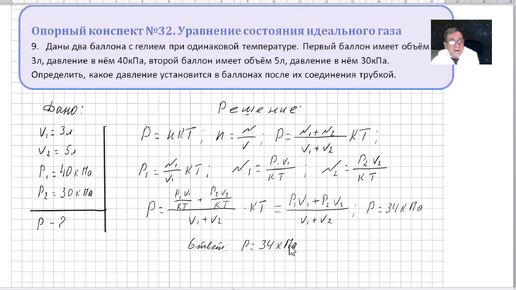 Опорный конспект №32. Уравнение состояния идеального газа
9. Даны два баллона с гелием при одинаковой температуре. Первый баллон имеет объём
3л, давление в нём 40кПа, второй баллон имеет объём 5л, давление в нём 30кПа.
Определить, какое давление установится в баллонах после их соединения трубкой.
Дано: Решение:
V₁ = 3л
V₂ = 5л
P₁ = 40кПа
P₂ = 30кПа
P - ?
P = nKT; n = N/V; P = (N₁ + N₂)/(V₁ + V₂) KT;
P₁ = N₁/V₁ KT; N₁ = P₁V₁/KT; N₂ = P₂V₂/KT
P = (P₁V₁/KT + P₂V₂/KT)/(V₁ + V₂) · KT = (P₁V₁ + P₂V₂)/(V₁ + V₂); P = 34кПа
Ответ: P = 34кПа